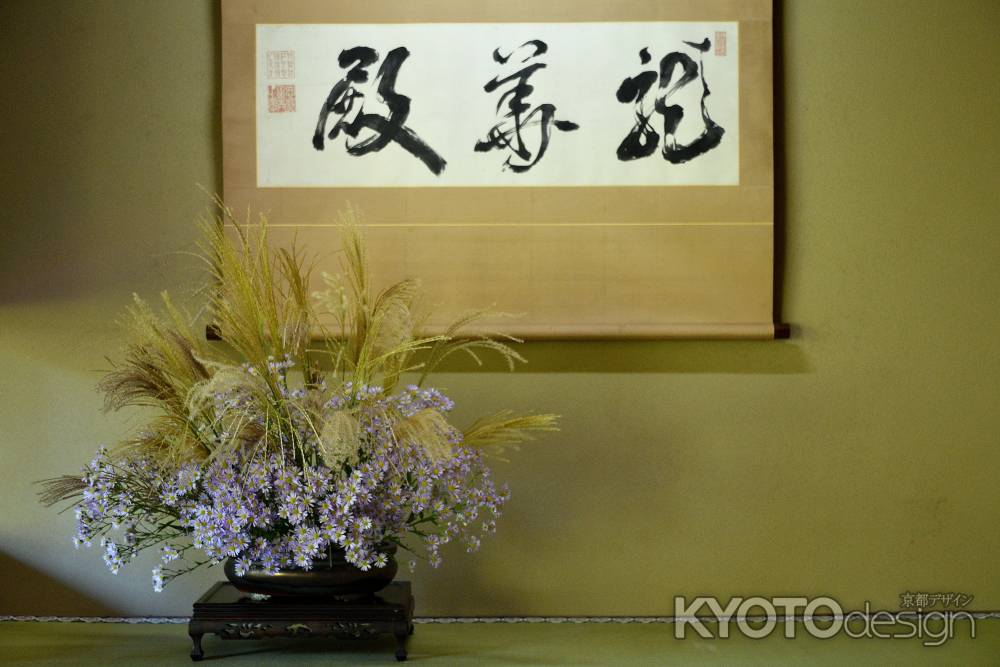 龍華殿
京都デザイン
KYOTOdesign